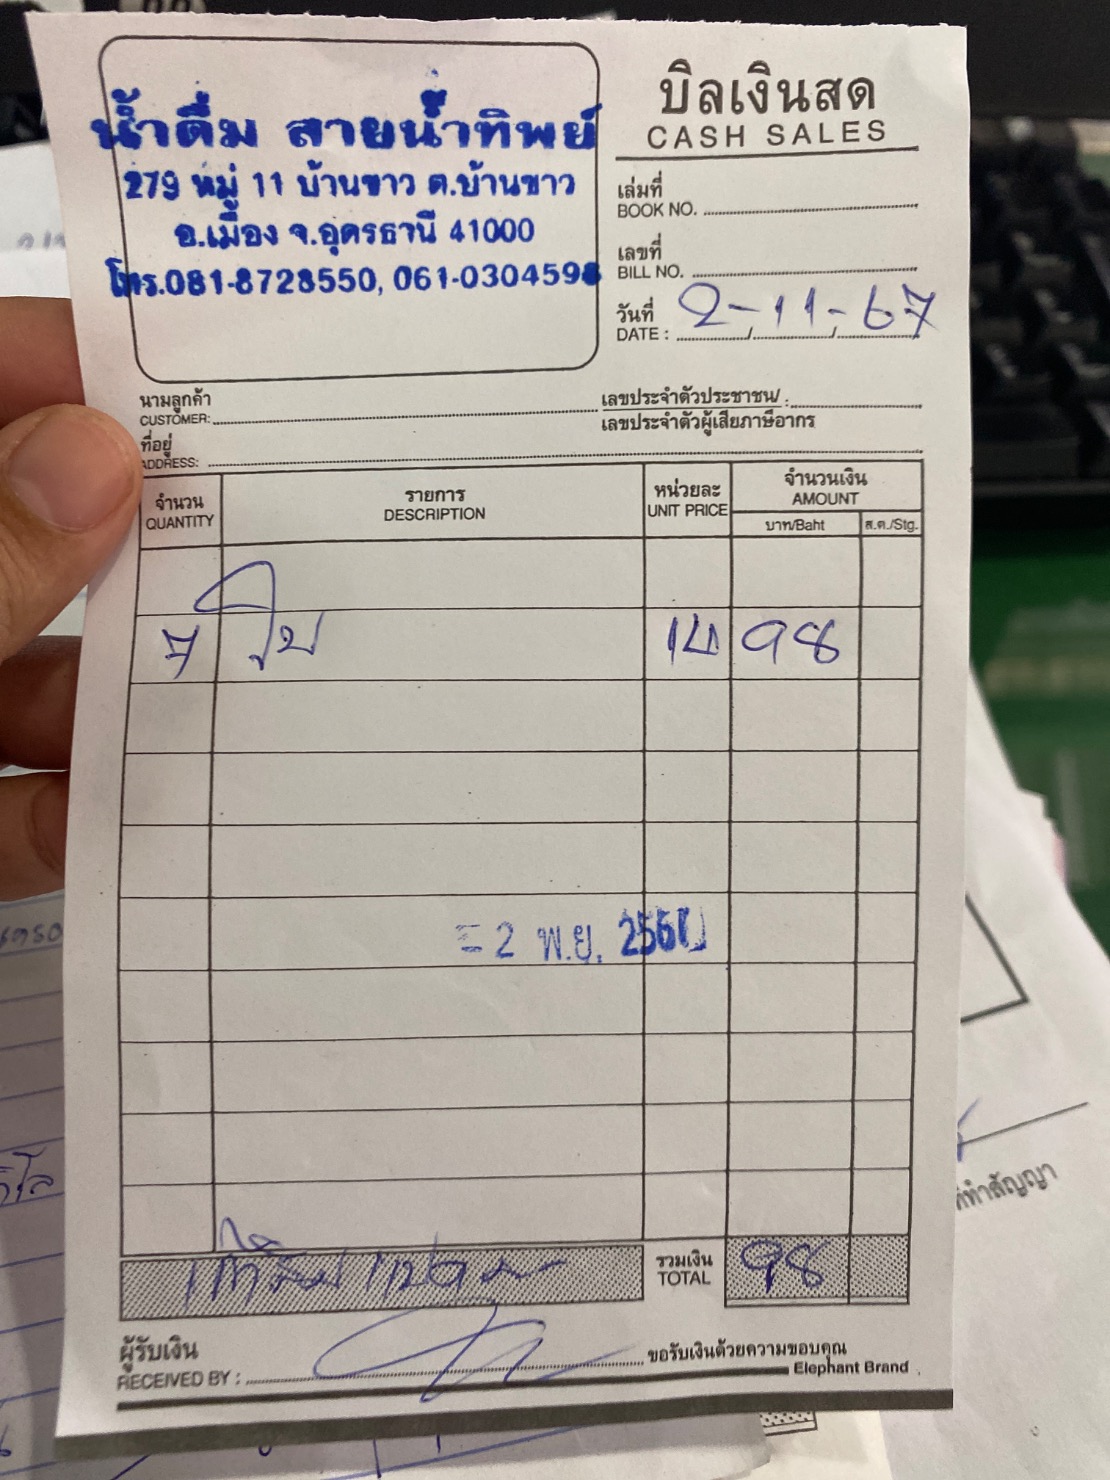 น้ำดื่ม สายน้ำทิพย์
279 หมู่ 11 บ้านขาว ต.บ้านขาว
อ.เมือง จ.อุดรธานี 41000
โทร.081-8728550, 061-0304598
บิลเงินสด
CASH SALES
เล่มที่
BOOK NO.
เลขที่
BILL NO.
วันที่
DATE : 2-11-67
นามลูกค้า
CUSTOMER:
เลขประจำตัวประชาชน/ :
เลขประจำตัวผู้เสียภาษีอากร
ที่อยู่
ADDRESS:
จำนวน รายการ หน่วยละ จำนวนเงิน
QUANTITY DESCRIPTION UNIT PRICE AMOUNT
บาท/Baht ส.ต./Stg.
7 ใบ 14 98
2 พ.ย. 2567
เก้าสิบแปด
รวมเงิน
TOTAL 98
ผู้รับเงิน
RECEIVED BY :
ขอรับเงินด้วยความขอบคุณ
Elephant Brand
ทำสัญญา